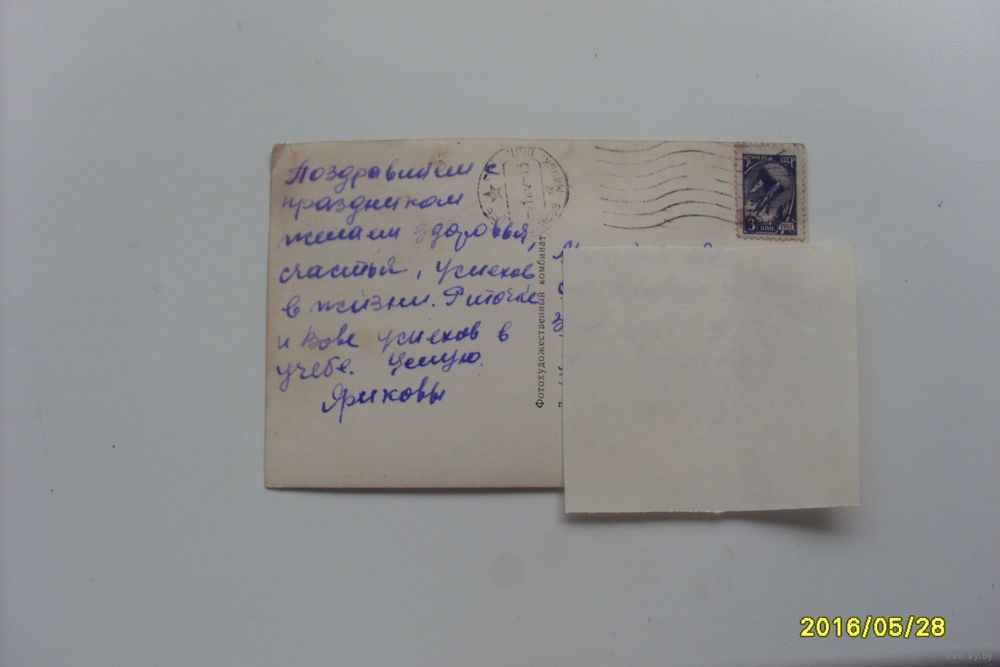 Поздравляем с
праздником
желаем здоровья,
счастья, успехов
в жизни. Риточке
и Вове успехов в
учебе. Целую.
Яриковы
Фотохудожественный комбинат
ПОЧТА СССР
3 КОП
2016/05/28
www.ay.by